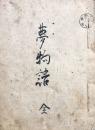 夢物語
全